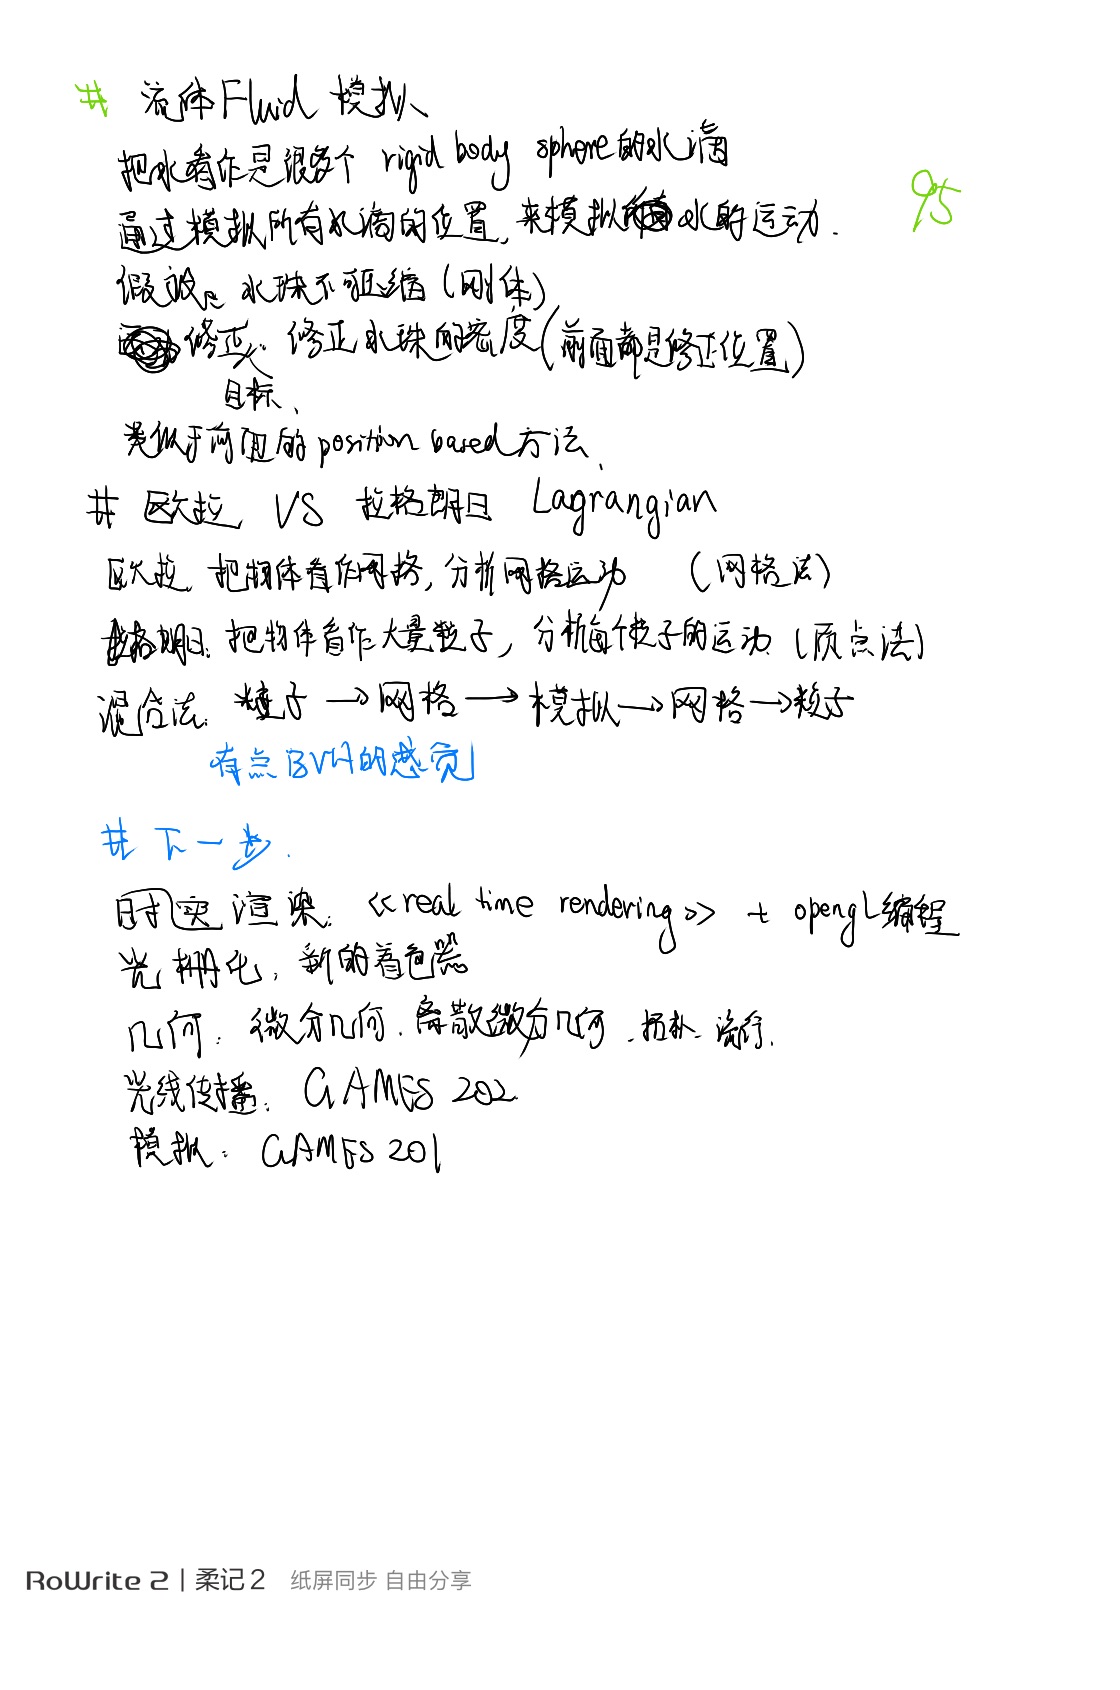 # 流体Fluid 模拟
把水看作是很多个 rigid body sphere的水滴
95
通过模拟所有水滴的位置,来模拟水的运动.
假设: 水珠不可压缩(刚体)
修正: 修正水珠的密度(前面都是修正位置)
目标、
类似于前面的position based方法、
# 欧拉 VS 拉格朗日 Lagrangian
欧拉: 把物体看作网格,分析网格运动 (网格法)
拉格朗日: 把物体看作大量粒子, 分析每个粒子的运动 (质点法)
混合法: 粒子→网格→模拟→网格→粒子
有点BVH的感觉
# 下一步.
时实渲染: 《real time rendering》 + opengl编程
光栅化, 新的着色器
几何: 微分几何、离散微分几何、拓扑、流行.
光线传播: GAMES 202
模拟: GAMES 201
RoWrite 2 | 柔记 2 纸屏同步 自由分享